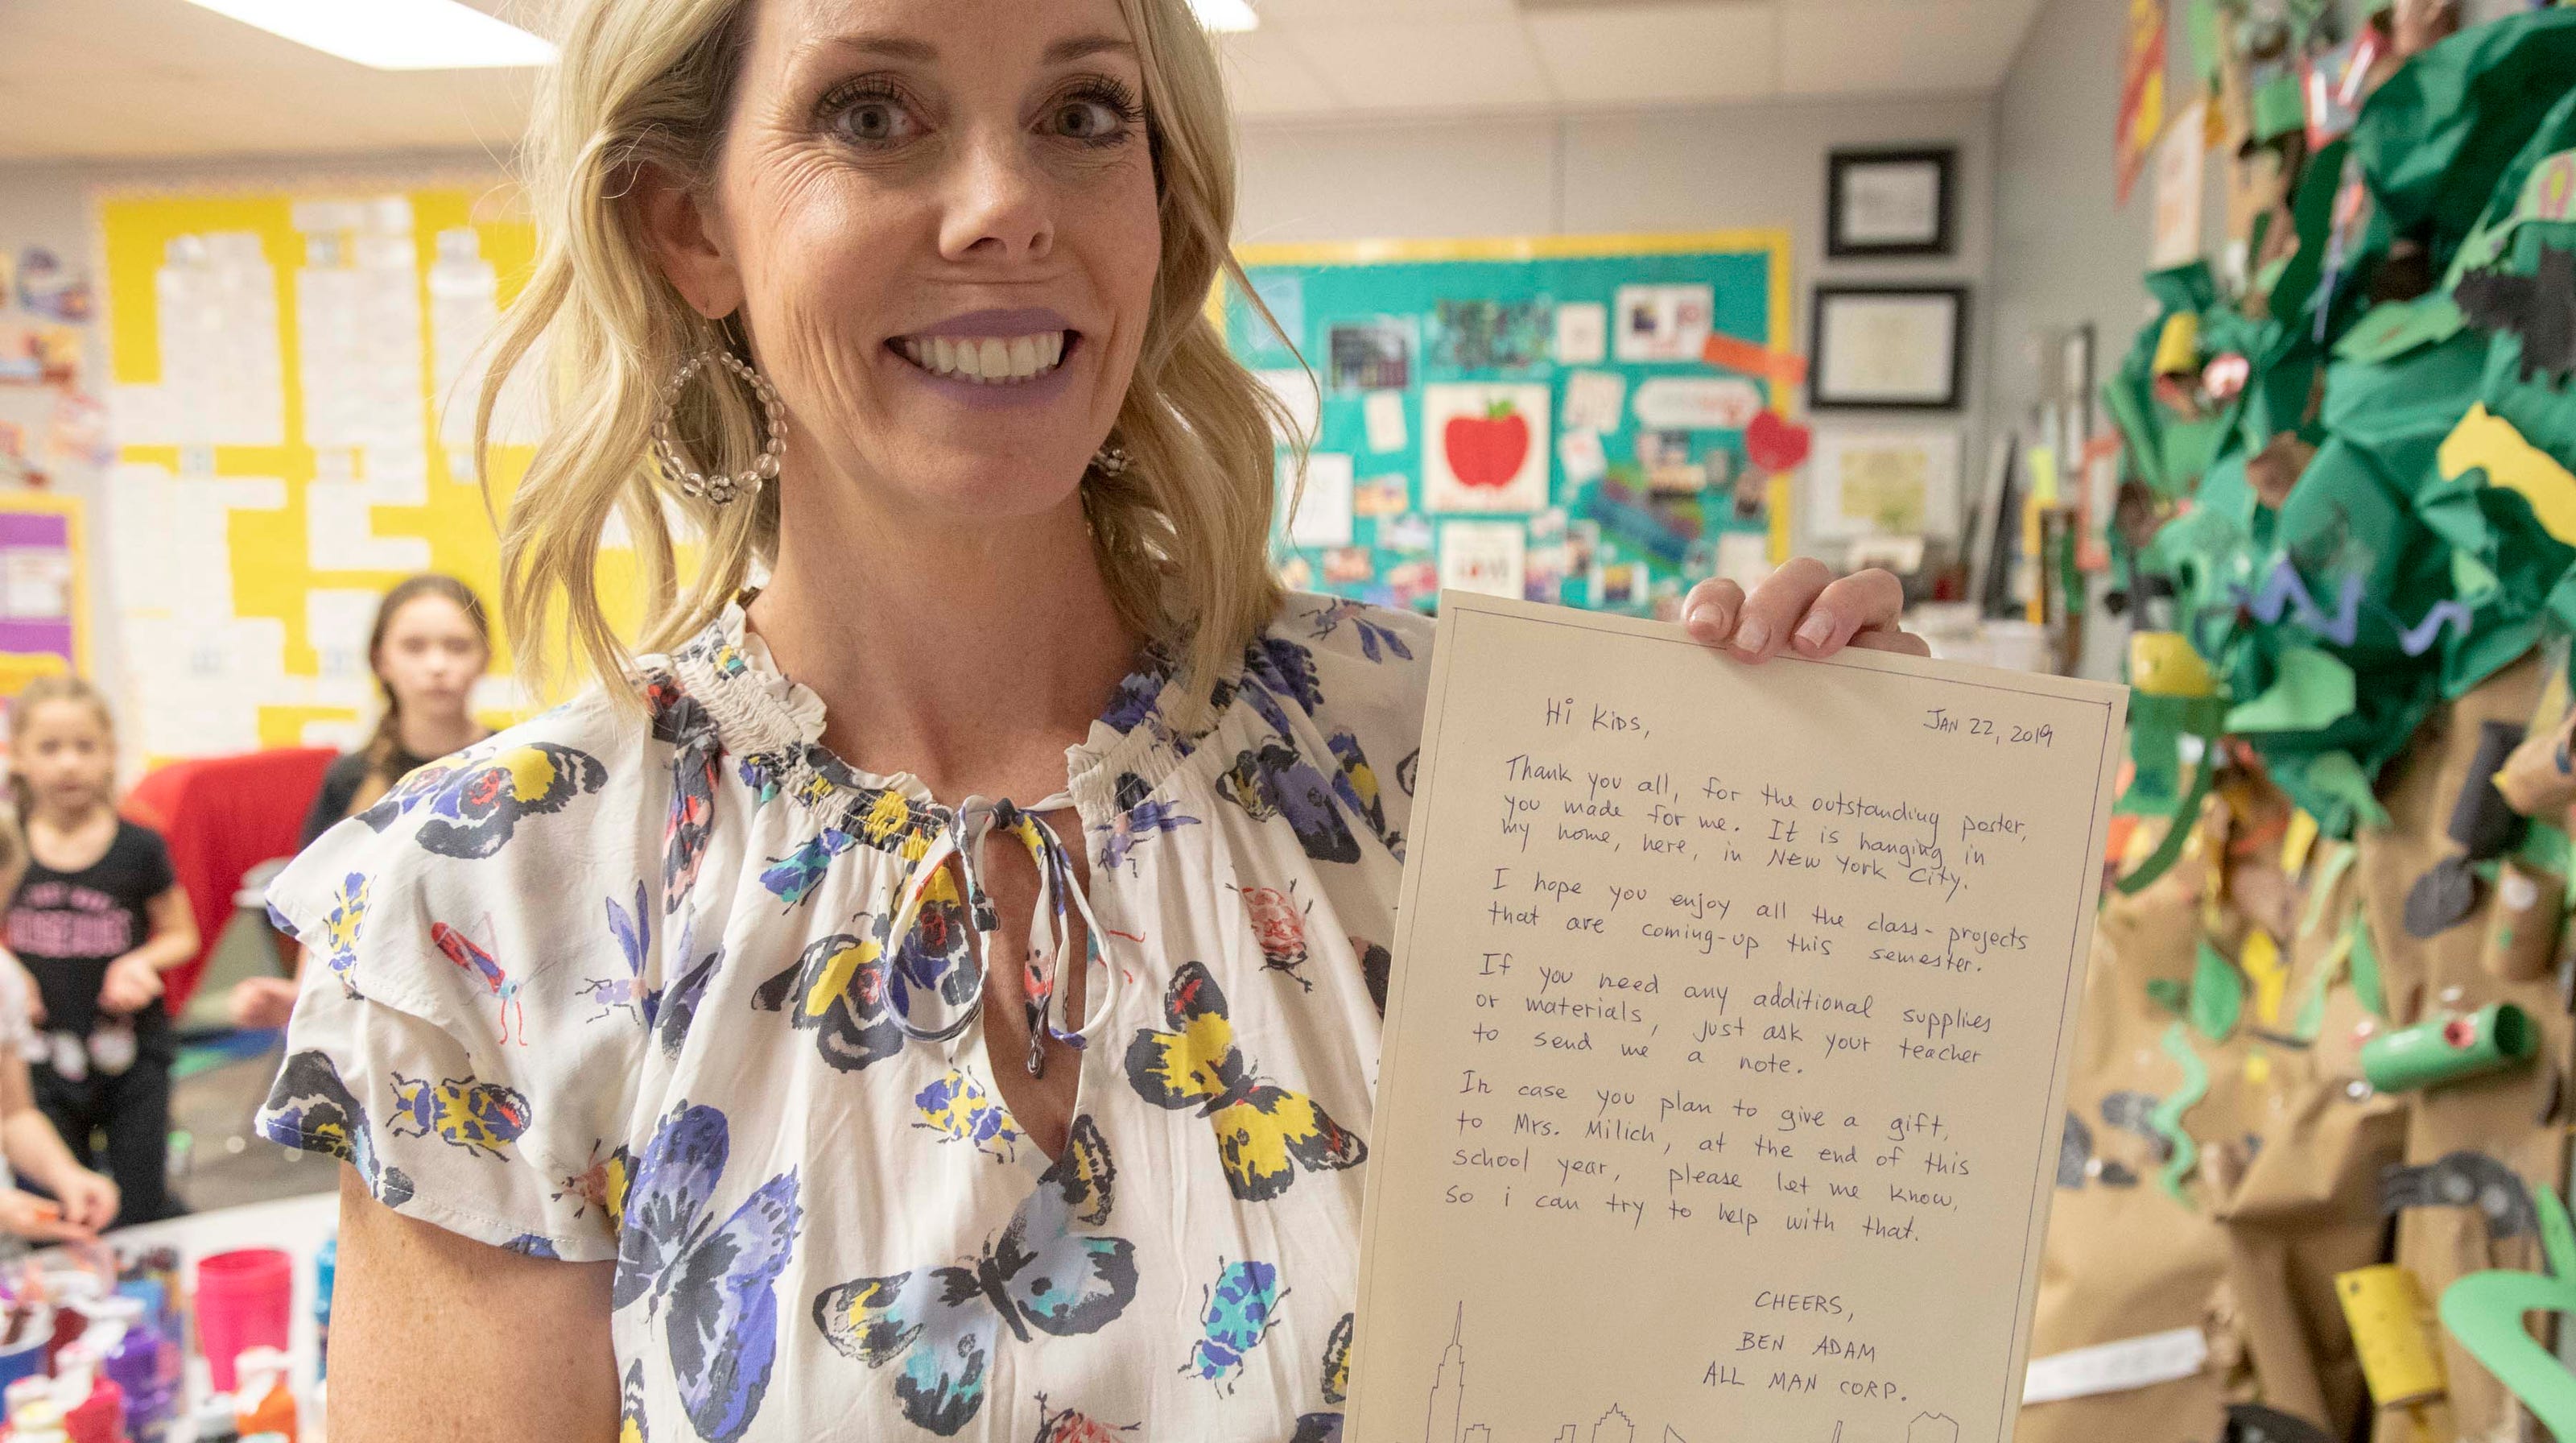 Hi KIDS,
JAN 22, 2019
Thank you all, for the outstanding poster,
you made for me. It is hanging in
my home, here, in NEW YORK City.
I hope you enjoy all the class-projects
that are coming-up this semester.
If you need any additional supplies
or materials, just ask your teacher
to send me a note.
In case you plan to give a gift,
to Mrs. Milich, at the end of this
school year, please let me know,
so i can try to help with that.
CHEERS,
BEN ADAM
ALL MAN CORP.